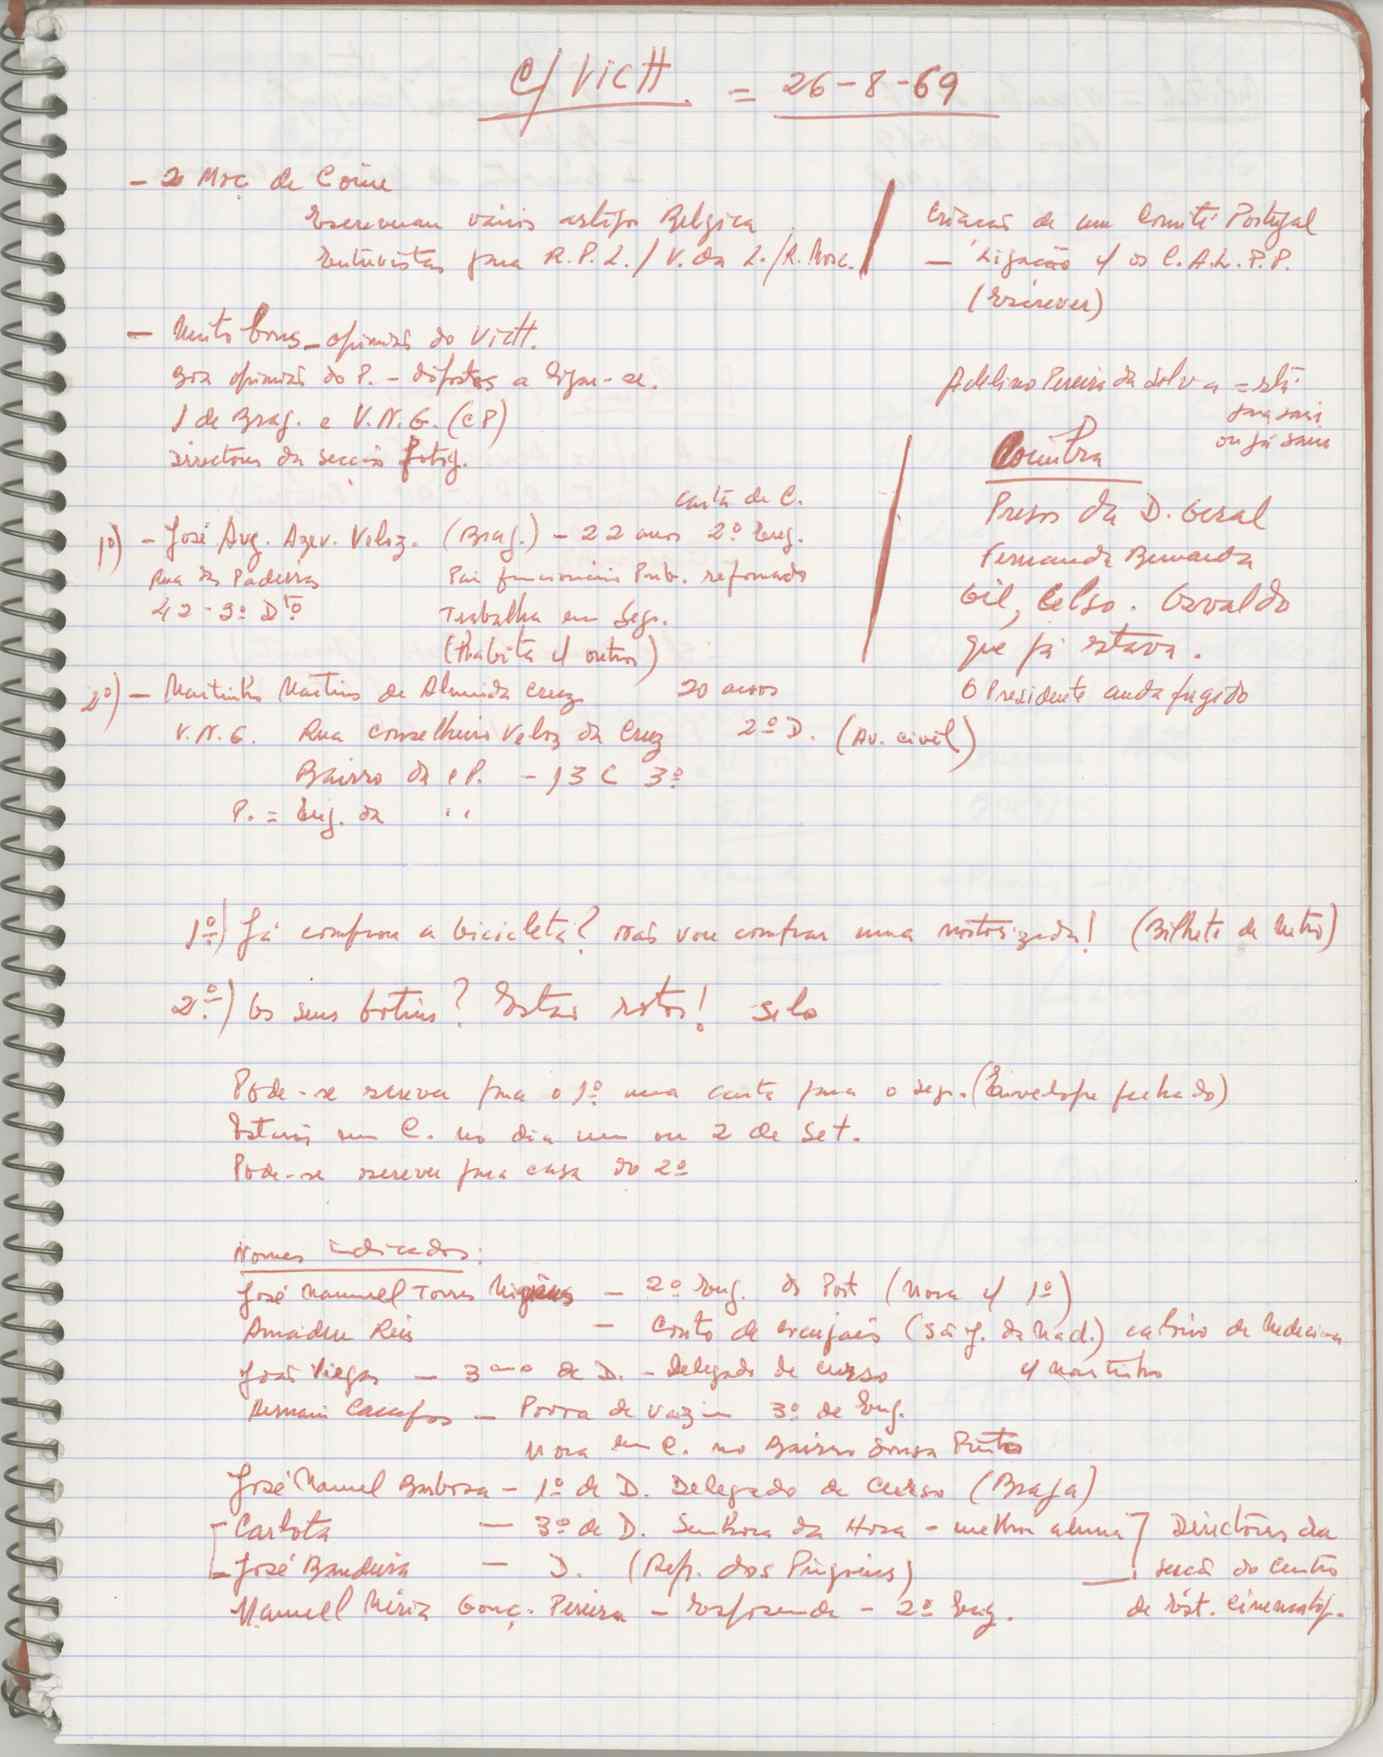 C/ VictH. = 26-8-69
- 2 Moç. de Coim.
Escreveram vários artigos Belgica
Entrevistas para R.P.L./V. da L./R. Mosc.
Criação de um Comité Portugal
- Ligação c/ os C.A.L.P.P.
(Escrever)
- Muito bons - opinião do VictH.
Boa opinião do P. - dispostos a ligar-se.
1 de Brag. e V.N.G. (CP)
Directores da secção fotog.
Adelino Pereira da Silva = está
para sair
ou já saiu
Coimbra
Presos da D. Geral
Fernanda Bernarda
Gil, Celso. Osvaldo
que já estava.
O Presidente anda fugido
carta de C.
1º) - José Aug. Azev. Veloz. (Brag.) - 22 anos 2º Eng.
Rua das Padeiras Pai funcionário Pub. reformado
42-3º Dtº Trabalha em Segs.
(Habita c/ outros)
2º) - Martinho Martins de Almeida Cruz 20 anos
V.N.G. Rua Conselheiro Veloz da Cruz 2º D. (Av. civil)
Bairro da CP. - 13 C 3º
P. = Eng. da " "
1º) Já comprou a bicicleta? Não vou comprar uma motorizada! (Bilhete de Metro)
2º) Os seus botins? Estão rotos! Selo
Pode-se escrever para o 1º uma carta para o seg. (Envelope fechado)
Estarão em C. no dia um ou 2 de Set.
Pode-se escrever para casa do 2º
Nomes indicados:
José Manuel Torres - 2º Eng. do Port (Mora c/ 1º)
Amadeu Reis - Couto de Cucujães (S. J. da Mad.) caloiro de Medicina
João Viegas - 3º ano de D. - Delegado de curso c/ Martinho
Campos - Povoa de Varzim 3º de Eng.
Mora em C. no Bairro Sousa Pinto
José Manuel Barbosa - 1º de D. Delegado de Curso (Braga)
Carlota - 3º de D. Senhora da Hora - melhor aluna] Directores da
José Bandeira - D. (Rep. dos Pingoins) secção do Centro
Manuel Gonç. Pereira - Esposende - 2º Eng. de Est. Cinematog.